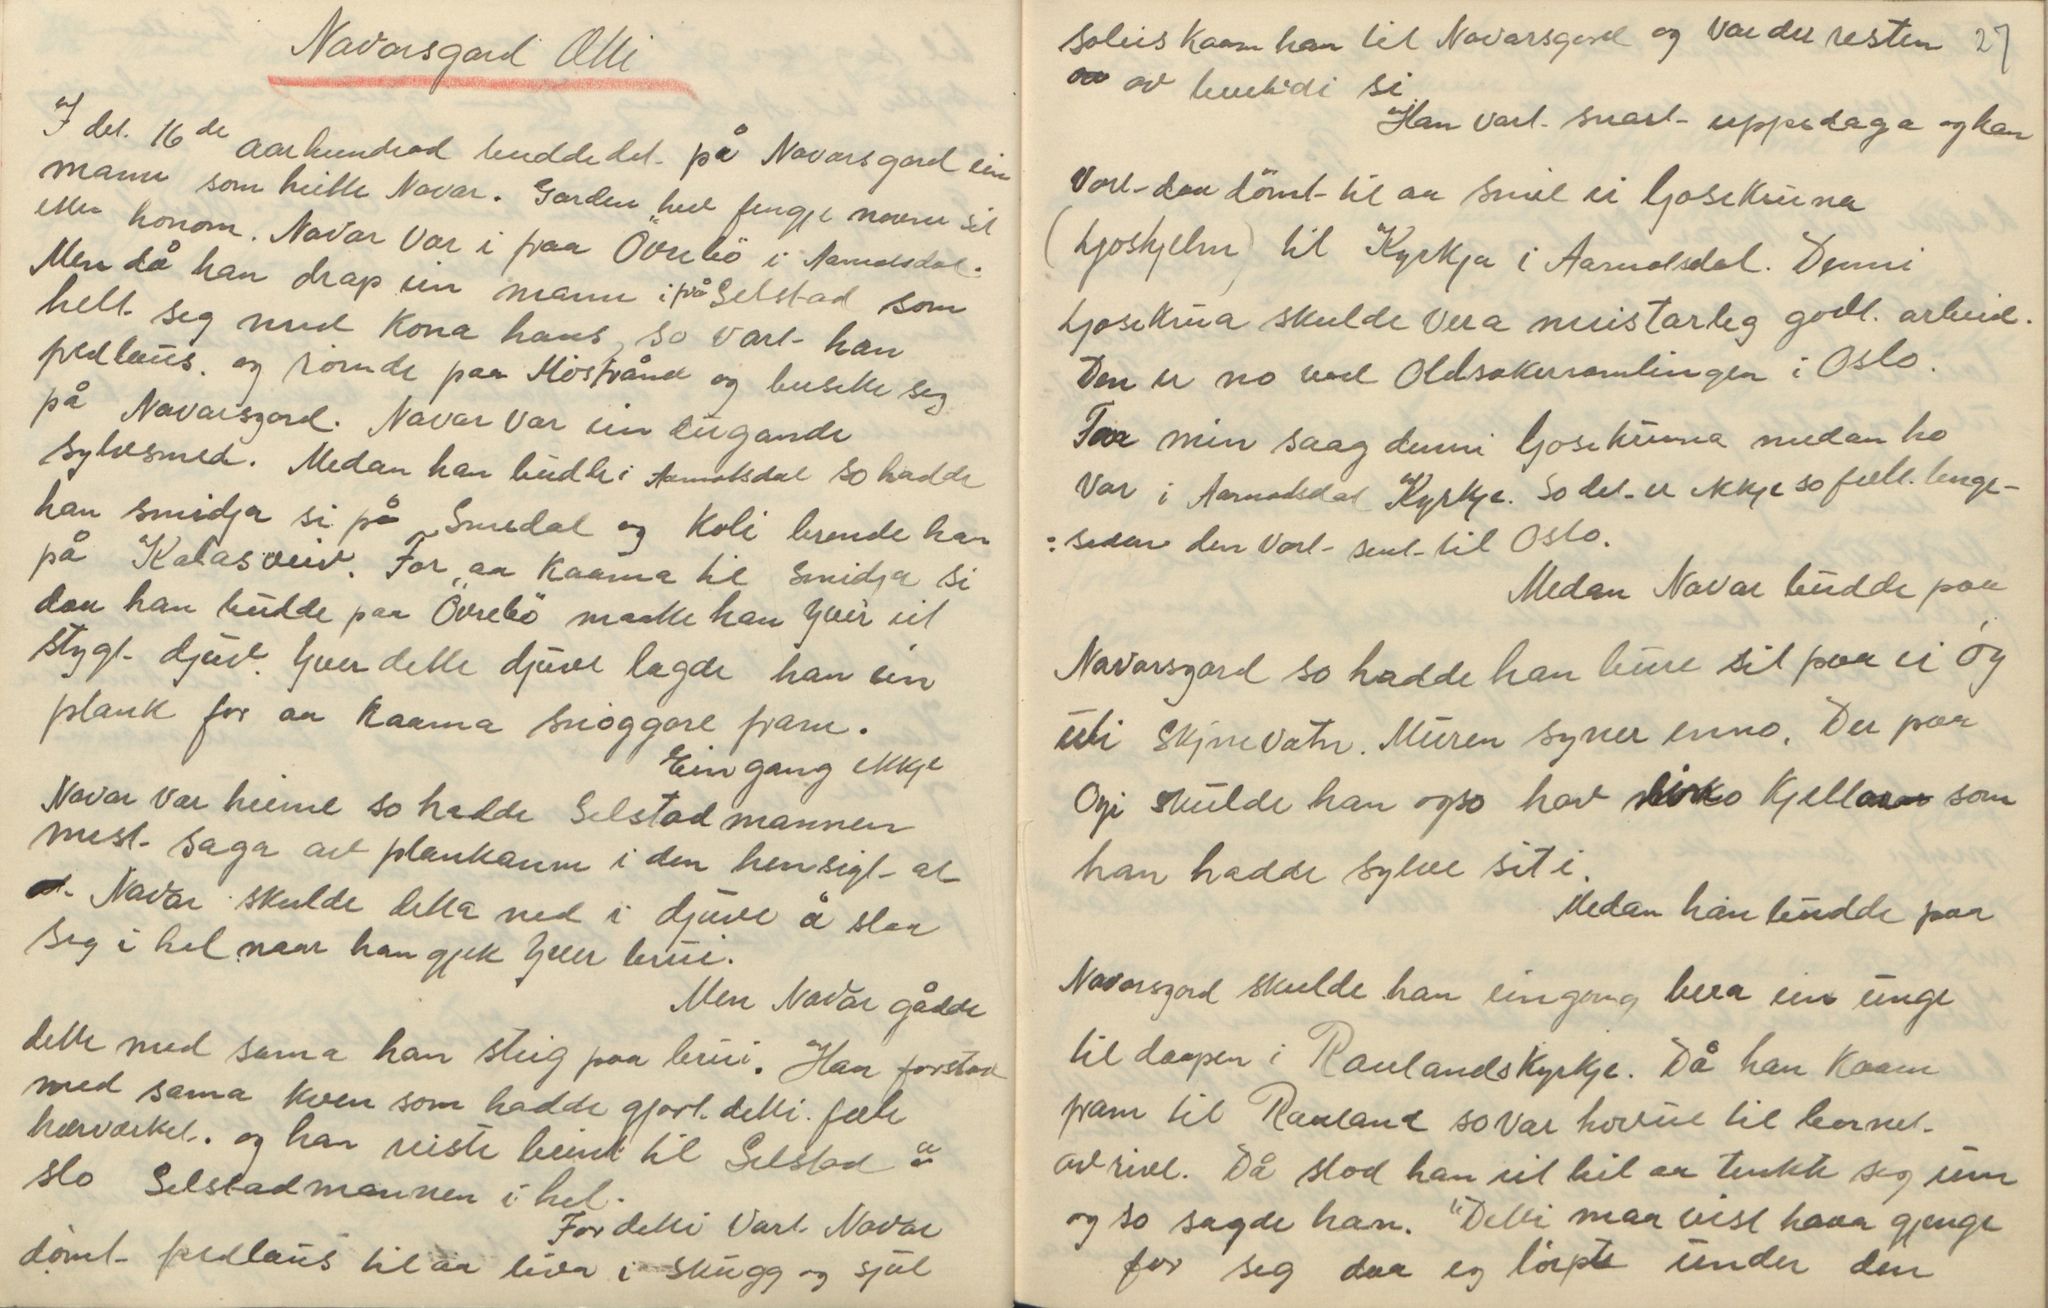 Navarsgard Ætti
I det. 16de aarhundrad budde det på Navarsgard ein
mann som heitte Navar. Garden hev fengje navne sit
etter honom. Navar var i fraa Övrebö i Aamotsdal.
Men då han drap ein mann ifrå Selstad som
helt seg med Kona hans, so vart han
fredlaus. og römde paa Mösstrånd og busette seg
på Navarsgord. Navar var ein dugande
sylvsmed. Medan han budde i Aamotsdal so hadde
han smidja si på Smedal og Koli brende han
på Kalasveiv. For aa Kaama til Smidja si
daa han budde paa Övrebö maatte han yver eit
stygt djuv. Yver dette djuve lagde han ein
plank for aa Kaama snöggare fram.
Ein gang ikkje
Navar var heime so hadde Selstadmannen
mest saga av plankann i den hensigt at
Navar skulde detta ned i djuve å slaa
seg i hel naar han gjek yver brui.
Men Navar gådde
dette med sama han steig paa brui. Han forstod
med sama kven som hadde gjort detti fæle
hærverket. og han reiste beint til Selstad å
slo Selstadmannen i hel.
For detti vart Navar
dömt fredlaus til aa liva i skugg og sjul
27
soleis kaam han til Navarsgard og var der resten
av levetidi si
Han vart snart uppdaga og han
vart daa dömt til aa smie ei ljosekruna
(Ljoshjelm) til Kyrkja i Aamotsdal. Denni
Ljosekruna skulde vera meistarleg godt arbeid.
Den er no ved Oldsakersamlingen i Oslo.
Far min saag denni ljosekruna medan ho
var i Aamotsdal Kyrkje. So det er ikkje so fælt lenge-
: sedan den vart sent til Oslo.
Medan Navar budde paa
Navarsgard so hadde han bure sit paa ei öy
uti Skjnevatn. Muren syner enno. Der paa
Oyi skulde han ogso hav Kjellar som
han hadde sylve sit i.
Medan han budde paa
Navarsgord skulde han eingong bera ein unge
til daapen i Raulands Kyrkje. Då han Kaam
fram til Rauland so var hovue til bornet
av rive. Då stod han eit bil aa tenkte seg um
og so sagde han. "Detti maa vist hava gjenge
for seg daa eg löipte under den